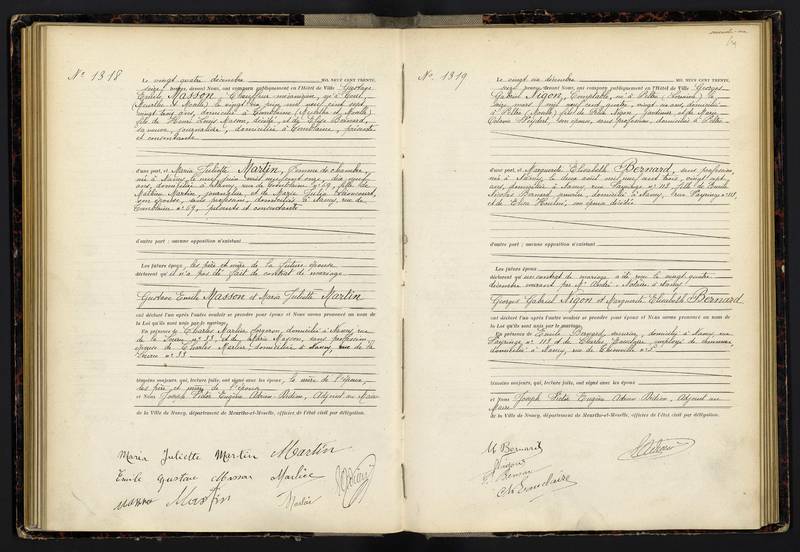 N° 1318
Le vingt quatre décembre MIL NEUF CENT TRENTE,
seize heures, devant Nous, ont comparu publiquement en l'Hôtel de Ville Gustave
Emile Masson, Chauffeur mécanicien, né à
(Meurthe et Moselle) le vingt six juin mil neuf cent sept
vingt trois ans, domicilié à Tomblaine (Meurthe et Moselle)
fils de Henri Louis Masson, décédé, et de Elise Bernard,
sa veuve, journalière, domiciliée à Tomblaine, présente
et consentante
d'une part, et Maria Juliette Martin, femme de chambre,
née à Nancy le neuf juin mil neuf cent onze, dix neuf
ans, domiciliée à Nancy, rue de Tomblaine n° 69, fille de
Martin, et de Maria Julia
son épouse, sans profession, domiciliés à Nancy, rue de
Tomblaine n° 69, présents et consentants
d'autre part ; aucune opposition n'existant
Les futurs époux, les père et mère de la future épouse
déclarent qu'il n'a pas été fait de contrat de mariage
Gustave Emile Masson et Maria Juliette Martin
ont déclaré l'un après l'autre vouloir se prendre pour époux et Nous avons prononcé au nom de
la Loi qu'ils sont unis par le mariage.
En présence de Charles Martin, forgeron, domicilié à Nancy, rue
de la n° 33, et de Marie Masson, sans profession,
épouse de Charles Martin, domiciliée à Nancy, rue de la
n° 33
témoins majeurs, qui, lecture faite, ont signé avec les époux, la mère de l'époux,
les père et mère de l'épouse
et Nous Joseph Victor Eugène Adrien Adjoint au Maire
de la Ville de Nancy, département de Meurthe-et-Moselle, officier de l'état civil par délégation.
Maria Juliette Martin Martin
Emile Gustave Masson
Masson Martin
N° 1319
Le vingt six décembre MIL NEUF CENT TRENTE,
seize heures, devant Nous, ont comparu publiquement en l'Hôtel de Ville Georges
Gabriel Comptable, né à Peltre (Lorraine) le
seize mars mil neuf cent quatre, vingt six ans, domicilié
à Peltre (Moselle) fils de jardinier et de Marie
son épouse, sans profession, domiciliés à Peltre
d'une part, et Marguerite Elisabeth Bernard, sans profession,
née à Nancy le deux août mil neuf cent trois, vingt sept
ans, domiciliée à Nancy, rue n° 113, fille de Emile
Nicolas Bernard, domicilié à Nancy, rue n° 113,
et de Elise son épouse décédée
d'autre part ; aucune opposition n'existant
Les futurs époux
déclarent qu'un contrat de mariage a été reçu le vingt quatre
décembre courant par Me André, Notaire à Nancy
Georges Gabriel et Marguerite Elisabeth Bernard
ont déclaré l'un après l'autre vouloir se prendre pour époux et Nous avons prononcé au nom de
la Loi qu'ils sont unis par le mariage.
En présence de Emile domicilié à Nancy rue
n° 113 et de Charles employé de commerce,
domicilié à Nancy, rue de Thionville n° 5
témoins majeurs, qui, lecture faite, ont signé avec les époux
et Nous Joseph Victor Eugène Adrien Adjoint au
Maire
de la Ville de Nancy, département de Meurthe-et-Moselle, officier de l'état civil par délégation.
M Bernard